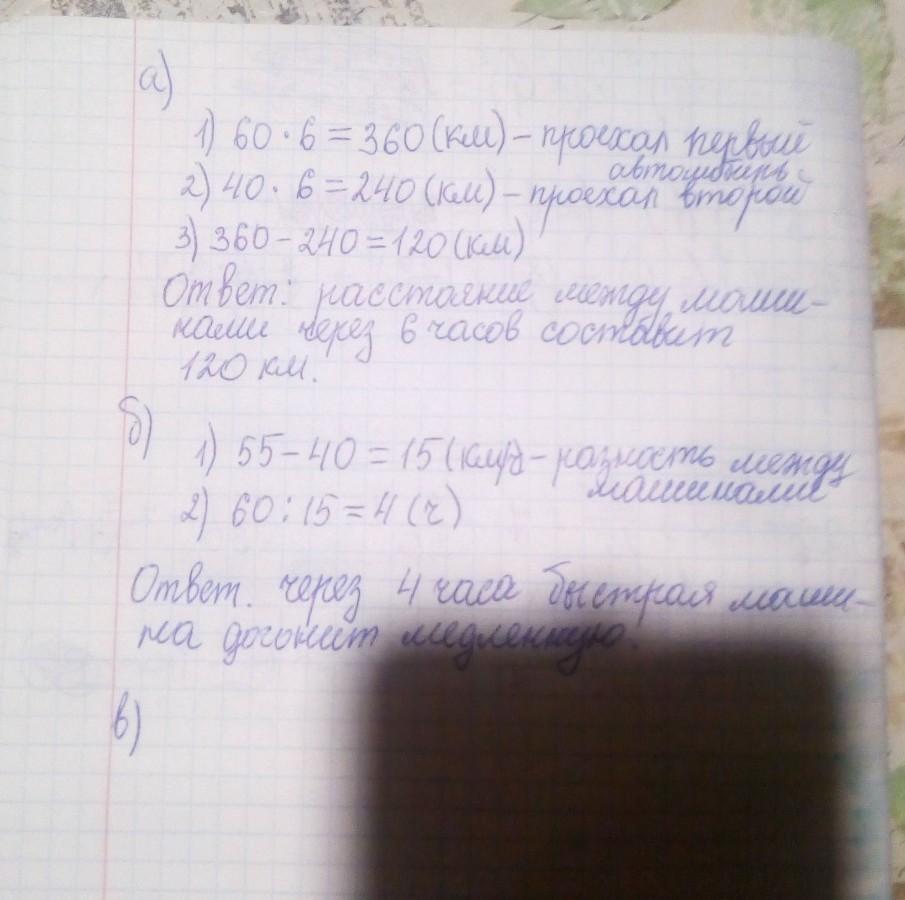 а)
1) 60 · 6 = 360 (км) – проехал первый
автомобиль
2) 40 · 6 = 240 (км) – проехал второй
3) 360 – 240 = 120 (км)
Ответ: расстояние между маши-
нами через 6 часов составит
120 км.
б)
1) 55 – 40 = 15 (км/ч – разность между
машинами
2) 60 : 15 = 4 (ч)
Ответ. через 4 часа быстрая маши-
на догонит медленную.
в)